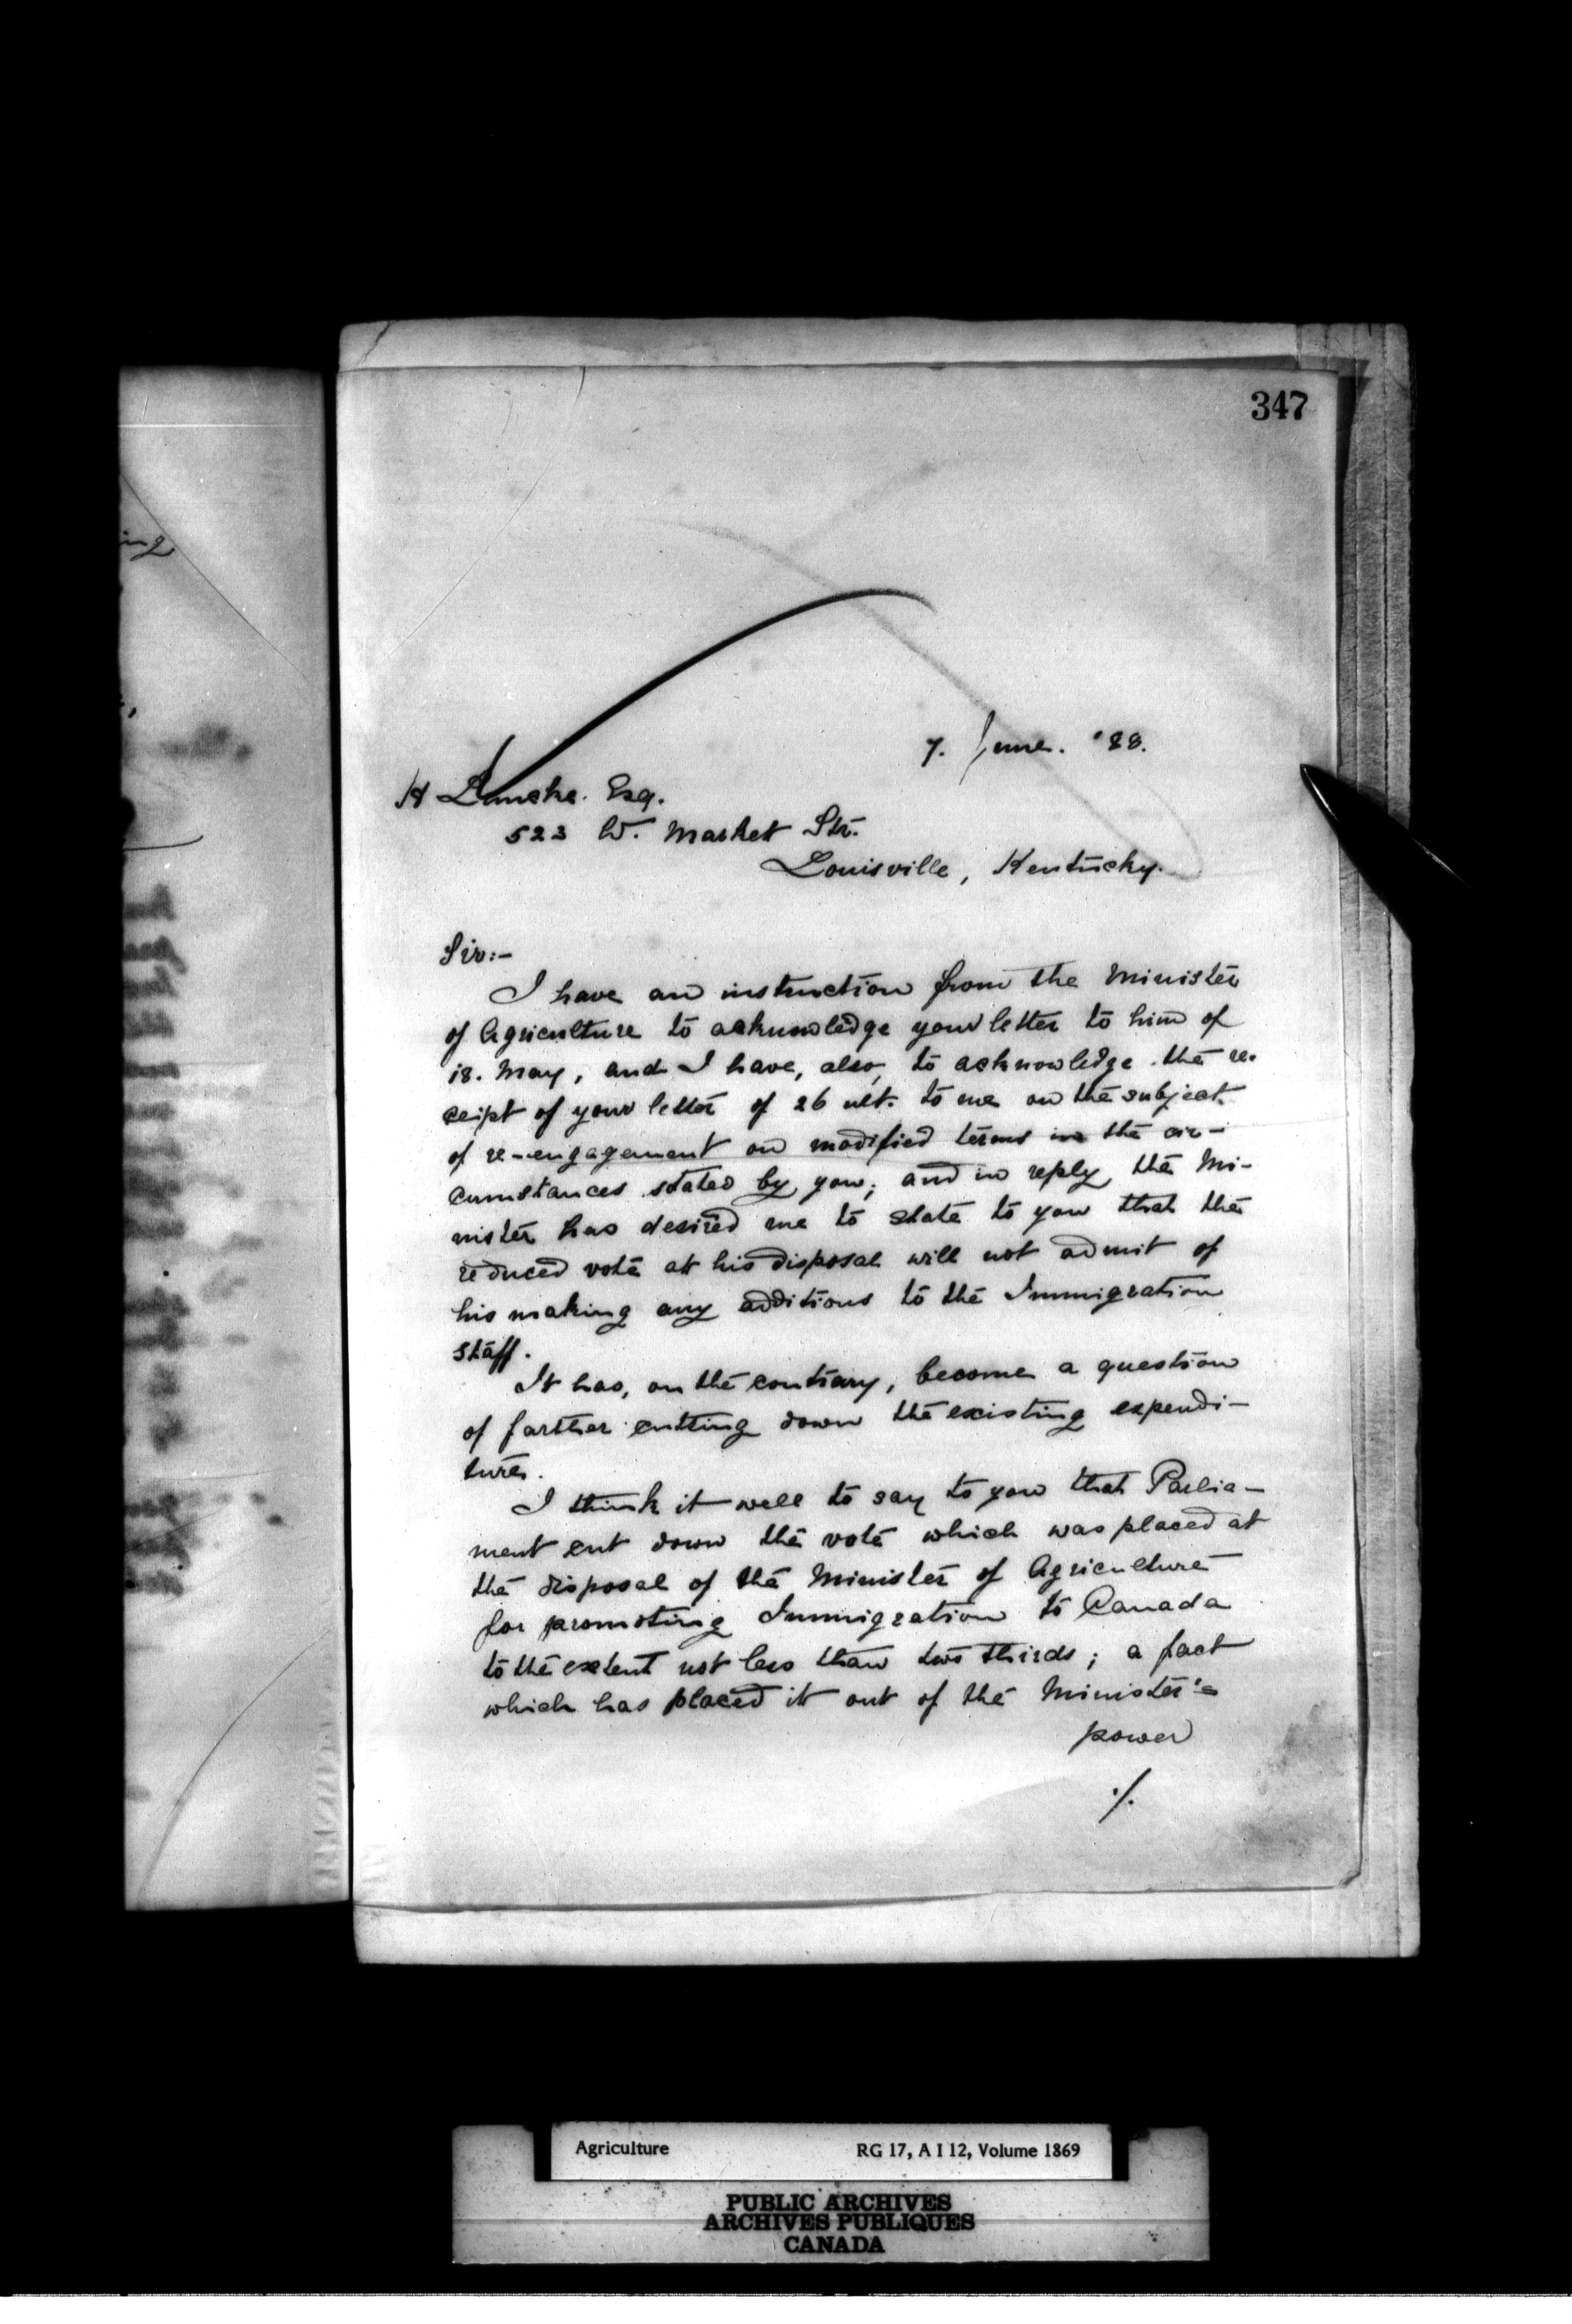 347
ing
7. June. '88.
H Esq.
523 W. Market Str.
Louisville, Kentucky.
Sir:-
I have an instruction from the Minister
of Agriculture to acknowledge your letter to him of
18. May, and I have, also, to acknowledge the re-
ceipt of your letter of 26 ult. to me on the subject
of re-engagement on modified terms in the cir-
cumstances stated by you; and in reply the Mi-
nister has desired me to state to you that the
reduced vote at his disposal will not admit of
his making any additions to the Immigration
staff.
It has, on the contrary, become a question
of farther cutting down the existing expendi-
ture.
I think it well to say to you that Parlia-
ment cut down the vote which was placed at
the disposal of the Minister of Agriculture
for promoting Immigration to Canada
to the extent not less than two thirds; a fact
which has placed it out of the Minister's
power
./.
Agriculture RG 17, A I 12, Volume 1869
PUBLIC ARCHIVES
ARCHIVES PUBLIQUES
CANADA